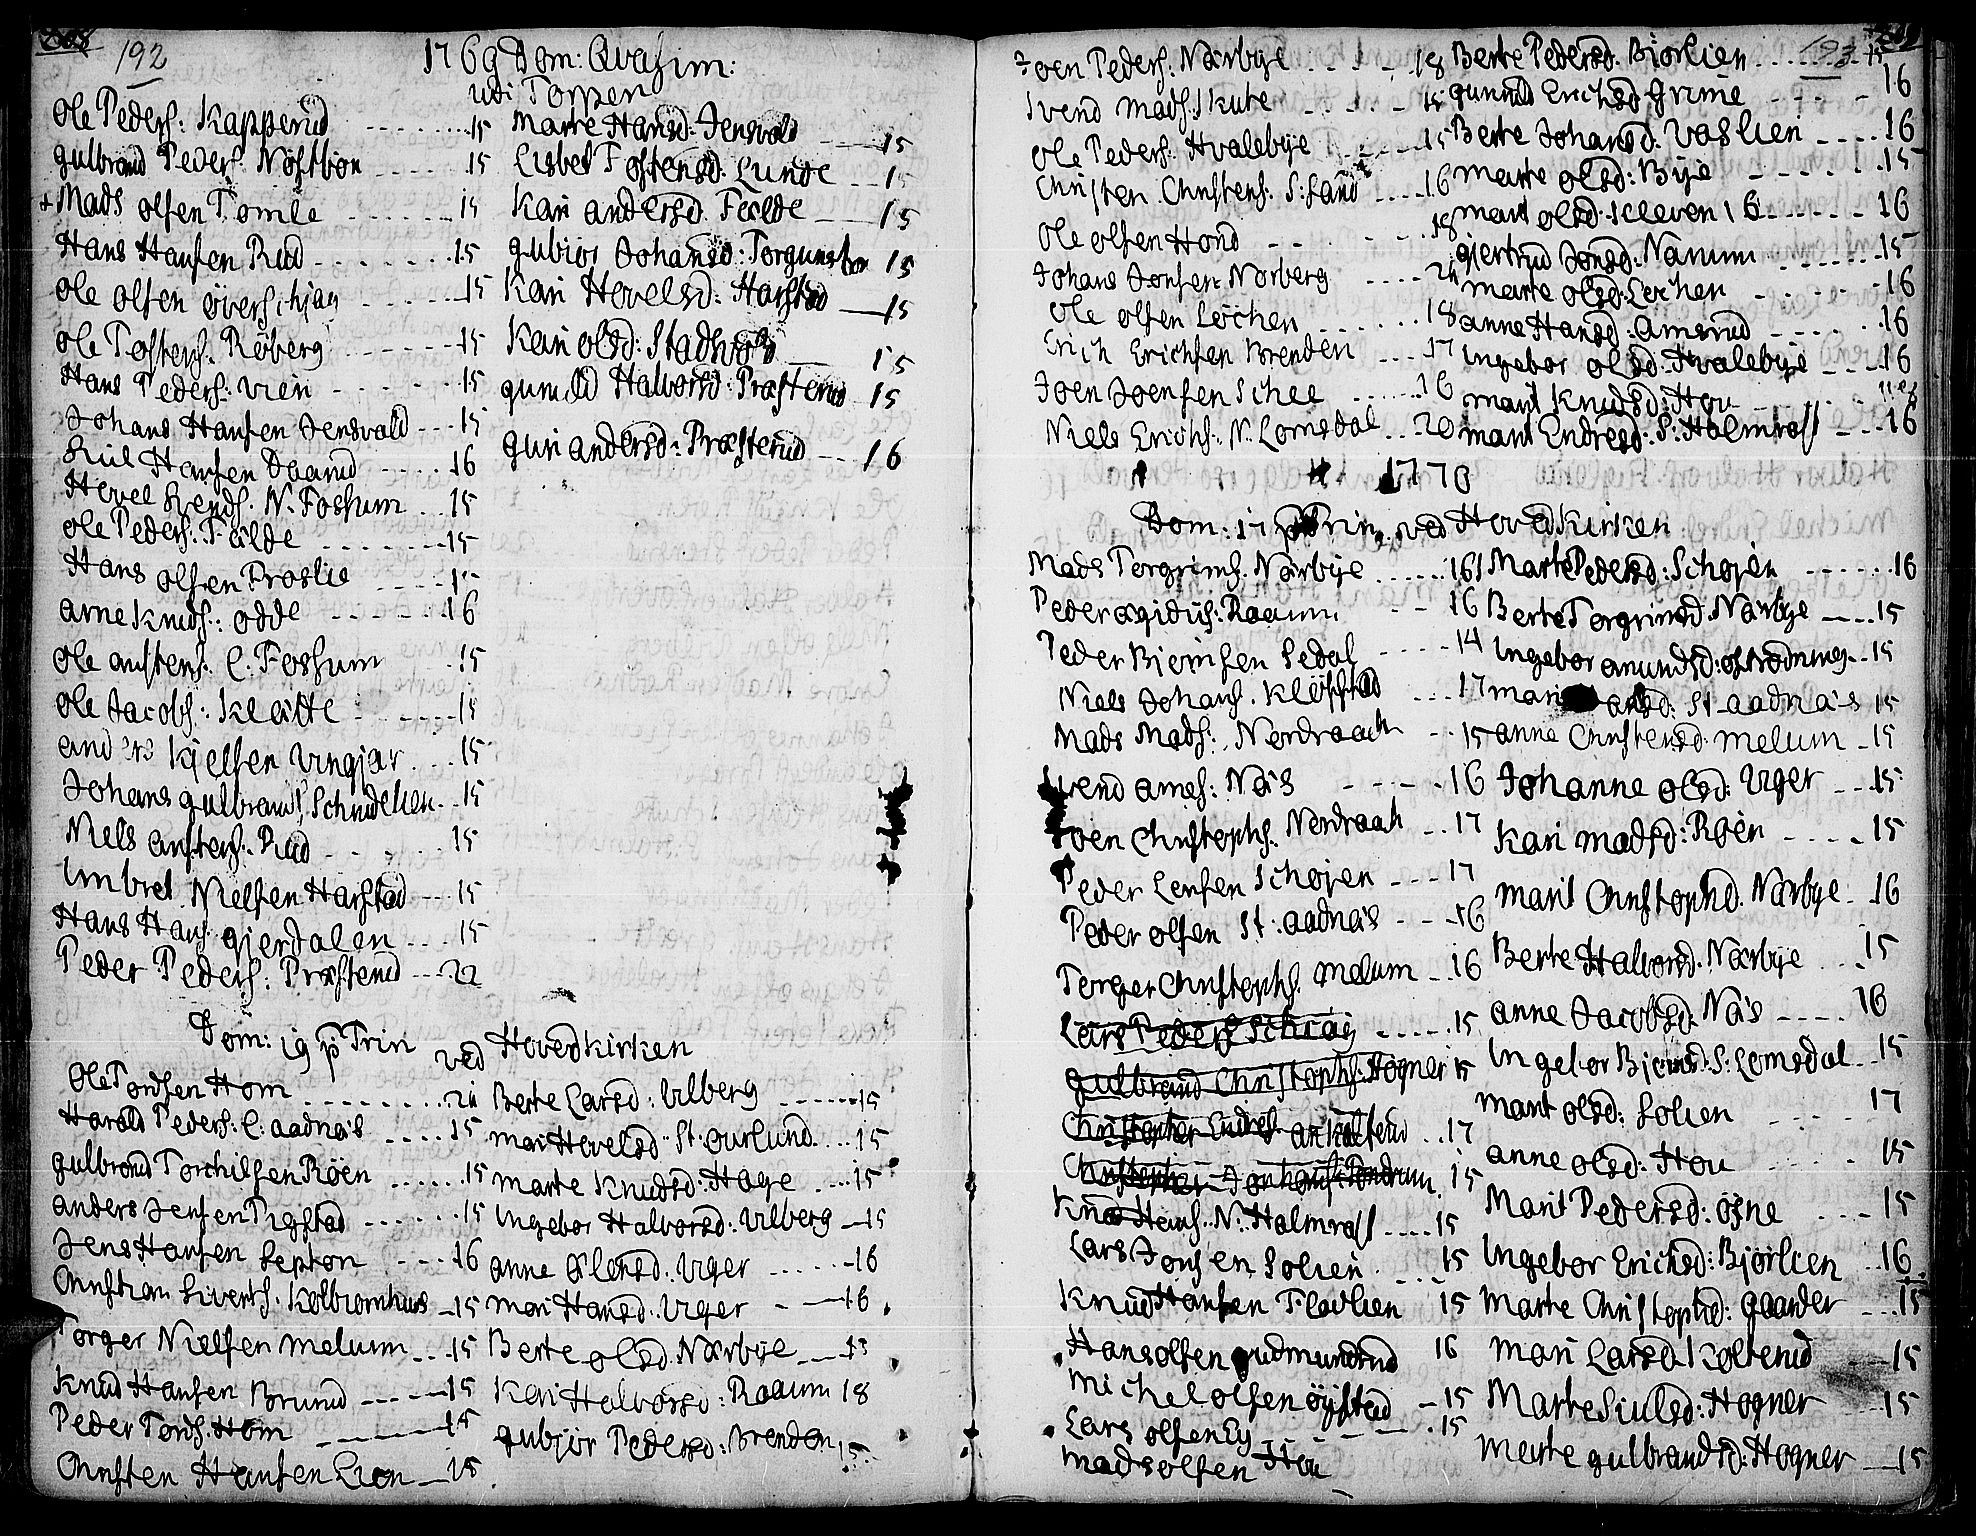 192
1769 Dom: Qvasim:
udi Torpen
Ole Peders: Kapperud - - - - 15
Gulbrand Peders. Nöstbön - - - - 15
+ Mads Olsen Tomle - - - - 15
Hans Hansen Rud - - - - 15
Ole Olsen - - - - 15
Ole Tostens. Röberg - - - - 15
Hans Peders: Vien - - - - 15
Johans Hansen Jensvold - - - 15
Hansen Daarud - - - - 16
Hovel Svends. N. Fossum - - 15
Ole Peders. Fælde - - - - 15
Hans Olsen Braslie - - - - 15
Arne Knuds: Odde - - - - 16
Ole Austens. L. Fossum - - 15
Ole Jacobs: Klætte - - - - 15
Anders Kjelsen - - - 15
Johans Gulbrands. - - 15
Niels Austens. Rud - - - - 15
Imbret Nielsen Harstad - - - 15
Hans Hans. Gjerdalen - - - 15
Peder Peders: Præsterud - - - 22
Marte Hansd. Jensvold - - 15
Lisbet Tostensd. Lunde - - 15
Kari Andersd. Fælde - - 15
Gubjör Johansd: 15
Kari Hovelsd: Harstad - 15
Kari Olsd: Stadsvold 15
Gunild Halvorsd: Præsterud 15
Guri Andersd: Præsterud - - 16
Dom: 19 p Trin ved Hovedkirken
Ole Tordsen Hom - - - - 24
Harald Peders. L: Aadnæs - - - - 15
Gulbrand Torchilsen Röen - - - - 15
Anders Jensen Pigstad - - - - 15
Jens Hansen - - - 16
Christian Siverts. Kolbiornhuus - 15
Torger Nielsen Melum - - - 15
Knud Hansen Brunud - - - - 15
Peder Tords. Hom - - - - 15
Christen Hansen Lien - 15
Berte Larsd: Ulberg - - - - 15
Mari Hovelsd. St. Ourlund - - - 15
Marte Knudsd: Hage - - - 15
Ingebor Halvorsd: Ulberg - 15
Anne Olensd. Uger - - - - 16
Mari Hansd. Uger - - - 16
Berte Olsd. Nærbye - - 15
Kari Halvorsd: Raaum 18
Gubjör Pedersd: Brenden 15
193
Joen Peders: Nærbye - - - - 18
Svend Mads. Skute - - - - 15
Ole Peders. Hvalebye - - - 15
Christen Christens: S: Land - - - 16
Ole Olsen Hond - - - - 18
Johans Jonsen: Norberg - - - 24
Ole Olsen Löchen - - - - 18
Erich Erichsen Brenden - - - 17
Joen Joensen Schee - - - - 16
Niels Erichs. N. Lomsdal - - - 20
Berte Pedersd. Biörlien - - - - 15
Gunild Erichsd Grime - - - - 16
Berte Johansd. Vaslien - - - - 16
Marte Olsd: Bye - - - - 15
Marit Olsd. Kleven 16 - - - - 16
Giertrud Jonsd: Narum - - - - 15
Marte Olsd. Löchen - - - - 16
Anne Hansd: Amsrud - - - - 16
Ingebor Olsd: Hvalebye - - - 16
Marit Knudsd: Hou - - - -
Marit Endresd. S: Halmrast - - 16
1770
Dom: 17 p Trin. ved Hovedkirken
Mads Torgrims. Nærbye - - - - 16
Peder Ægidius: Raaum - - 16
Peder Björnsen Sedal - - - - 14
Niels Johans. Klöfstad - - - 17
Mads Mads: Nordraach - - 15
Svend Arnes: Næs - - - - 16
Joen Christophs. Nordraach - - 17
Peder Lensen Schöjen - - - 17
Peder Olsen St: Aadnæs - - 16
Torger Christophs. Melum - 16
Lars Peders Schiag - - - - 15
Gulbrand Christophs: Hogner 15
Christopher Endres. - - 17
Christopher 15
Knud Hans. N: Halmrast - - - 15
Lars Jonsen Solien - - - 15
Knud Hansen Fladlien 15
Hans Olsen Gudmundrud 16
Michel Olsen Öystad - 15
Lars Olsen Ey - - - - 15
Mads Olsen Hou
Marte Pedersd: Schöjen - - - - 16
Berte Torgrimsd. Nærbye - - 15
Ingebor Amundsd: - - 15
Mari St Aadnæs 15
Anne Christensd: Melum - 15
Johanne Olsd: Uger - - 15
Kari Madsd: Röen - - - - 15
Marit Christophd. Nærbye - 16
Berte Halvorsd. Nærbye - - - 15
Anne Jacobsd. Næs - - - - 16
Ingebor Björnsd: S: Lomsdal - - 15
Marit Olsd: Solien - - - 17
Anne Olsd: Hou - - - - 15
Marit Pedersd: Ösne - - - 15
Ingebor Erichsd: Björlien - - 16
Marte Christophd: Gaarder - - - 15
Mari Larsd. Kolterud - - 15
Marte Siulsd: Hogner - - - 15
Marte Gulbrandsd: Hogner - 15